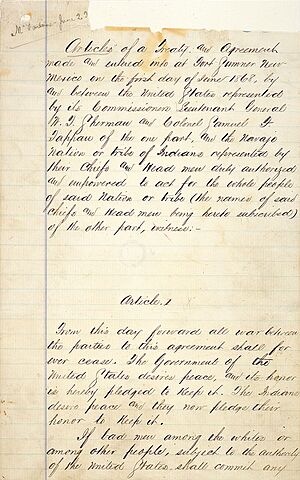 June 23
Articles of a Treaty and Agreement
made and entered into at Fort Sumner New
Mexico on the first day of June 1868, by
and between the United States represented
by its Commissioners Lieutenant General
W. T. Sherman and Colonel Samuel F.
Tappan of the one part, and the Navajo
Nation or tribe of Indians represented by
their Chiefs and Head men duly authorized
and empowered to act for the whole people
of said Nation or tribe (the names of said
Chiefs and Head men being hereto subscribed)
of the other part, witness:-
Article. 1
From this day forward all war between
the parties to this agreement shall for
ever cease. The Government of the
United States desires peace, and its honor
is hereby pledged to keep it. The Indians
desire peace and they now pledge their
honor to keep it.
If bad men among the whites or
among other people, subject to the authority
of the United States shall commit any